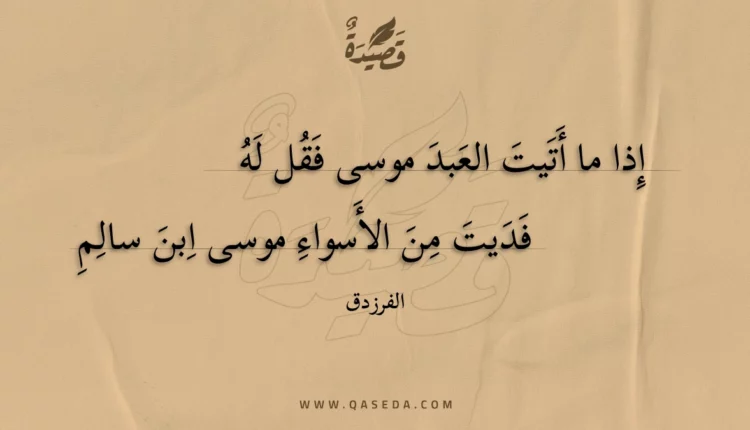 قَصِيدَةٌ
إِذا ما أَتَيتَ العَبدَ موسى فَقُل لَهُ
فَدَيتَ مِنَ الأَسواءِ موسى اِبنَ سالِمِ
الفرزدق
WWW.QASEDA.COM